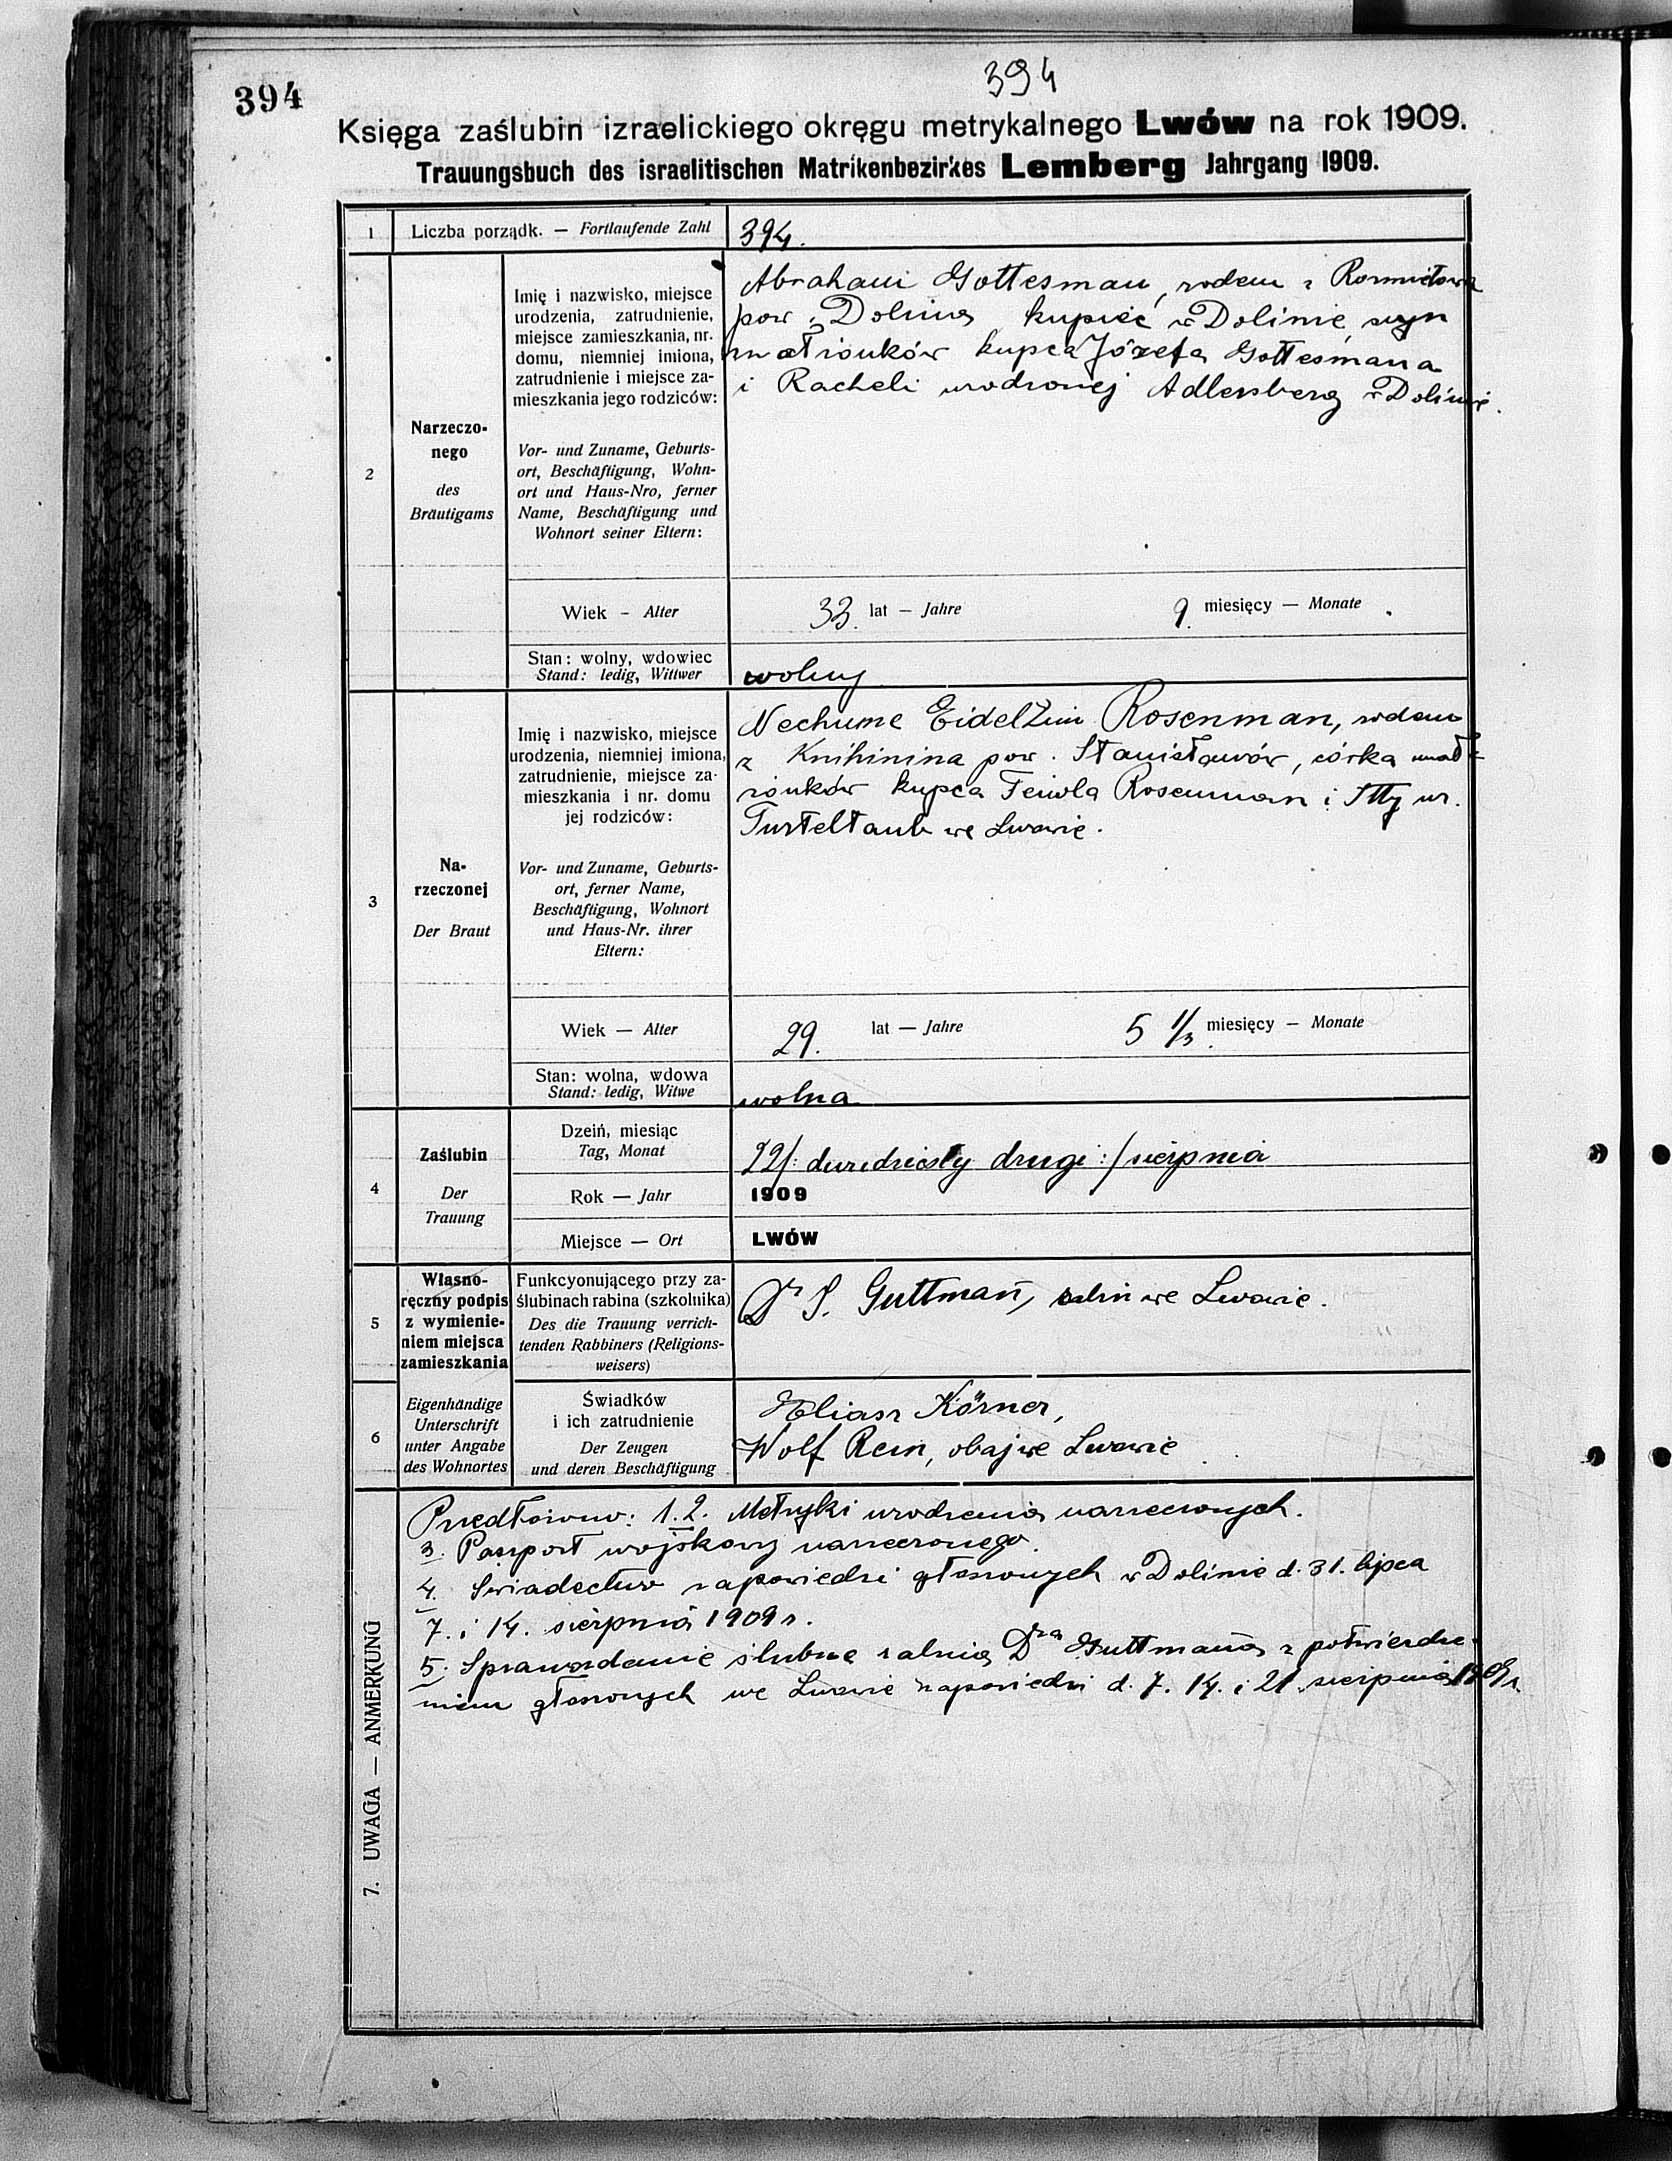 394
394
Księga zaślubin izraelickiego okręgu metrykalnego Lwów na rok 1909.
Trauungsbuch des israelitischen Matrikenbezirkes Lemberg Jahrgang 1909.
1
Liczba porządk. — Fortlaufende Zahl
394.
2
Narzeczo-
nego
des
Bräutigams
Imię i nazwisko, miejsce
urodzenia, zatrudnienie,
miejsce zamieszkania, nr.
domu, niemniej imiona,
zatrudnienie i miejsce za-
mieszkania jego rodziców:
Vor- und Zuname, Geburts-
ort, Beschäftigung, Wohn-
ort und Haus-Nro, ferner
Name, Beschäftigung und
Wohnort seiner Eltern:
Abraham Gottesman, rodem z
pow. Dolina kupiec w Dolinie, syn
małżonków kupca Józefa Gottesmana
i Racheli urodzonej Adlersberg w Dolinie.
Wiek - Alter
33. lat — Jahre
9. miesięcy — Monate
Stan: wolny, wdowiec
Stand: ledig, Wittwer
wolny
3
Na-
rzeczonej
Der Braut
Imię i nazwisko, miejsce
urodzenia, niemniej imiona,
zatrudnienie, miejsce za-
mieszkania i nr. domu
jej rodziców:
Vor- und Zuname, Geburts-
ort, ferner Name,
Beschäftigung, Wohnort
und Haus-Nr. ihrer
Eltern:
Nechume Rosenman, rodem
z Knihinina pow. Stanisławów, córka mał-
żonków kupca Feiwla Rosenman i Itty ur.
Turteltaub we Lwowie.
Wiek — Alter
29. lat — Jahre
5 1/3 miesięcy — Monate
Stan: wolna, wdowa
Stand: ledig, Witwe
wolna
4
Zaślubin
Der
Trauung
Dzeiń, miesiąc
Tag, Monat
22/: dwudziesty drugi :/ sierpnia
Rok — Jahr
1909
Miejsce — Ort
LWÓW
5
Własno-
ręczny podpis
z wymienie-
niem miejsca
zamieszkania
Funkcyonującego przy za-
ślubinach rabina (szkolnika)
Des die Trauung verrich-
tenden Rabbiners (Religions-
weisers)
Dr S. Guttman, rabin we Lwowie.
6
Eigenhändige
Unterschrift
unter Angabe
des Wohnortes
Świadków
i ich zatrudnienie
Der Zeugen
und deren Beschäftigung
Eliasz Körner,
Wolf Rein, obaj we Lwowie
7. UWAGA — ANMERKUNG
Przedłożono: 1. 2. Metryki urodzenia narzeczonych.
3. Paszport wojskowy narzeczonego.
4. Świadectwo zapowiedzi głoszonych w Dolinie d. 31. lipca
7. i 14. sierpnia 1909 r.
5. Sprawozdanie ślubne rabina Dra Guttmana z potwierdze-
niem głoszonych we Lwowie zapowiedzi d. 7. 14. i 21. sierpnia 1909 r.